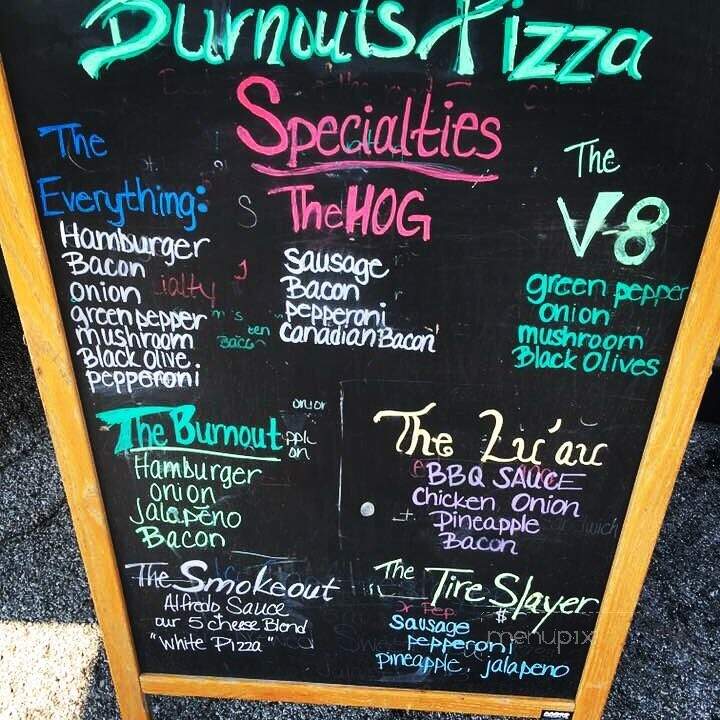 Burnouts Pizza
Specialties
The
Everything:
Hamburger
Bacon
onion
green pepper
mushroom
Black olive
pepperoni
The HOG
Sausage
Bacon
pepperoni
Canadian Bacon
The
V-8
green pepper
onion
mushroom
Black Olives
The Burnout
Hamburger
onion
Jalapeño
Bacon
The Lu'au
BBQ SAUCE
Chicken Onion
Pineapple
Bacon
The Smokeout
Alfredo Sauce
our 5 cheese Blend
"White Pizza"
The Tire Slayer
Sausage
pepperoni
pineapple, jalapeno
menupix